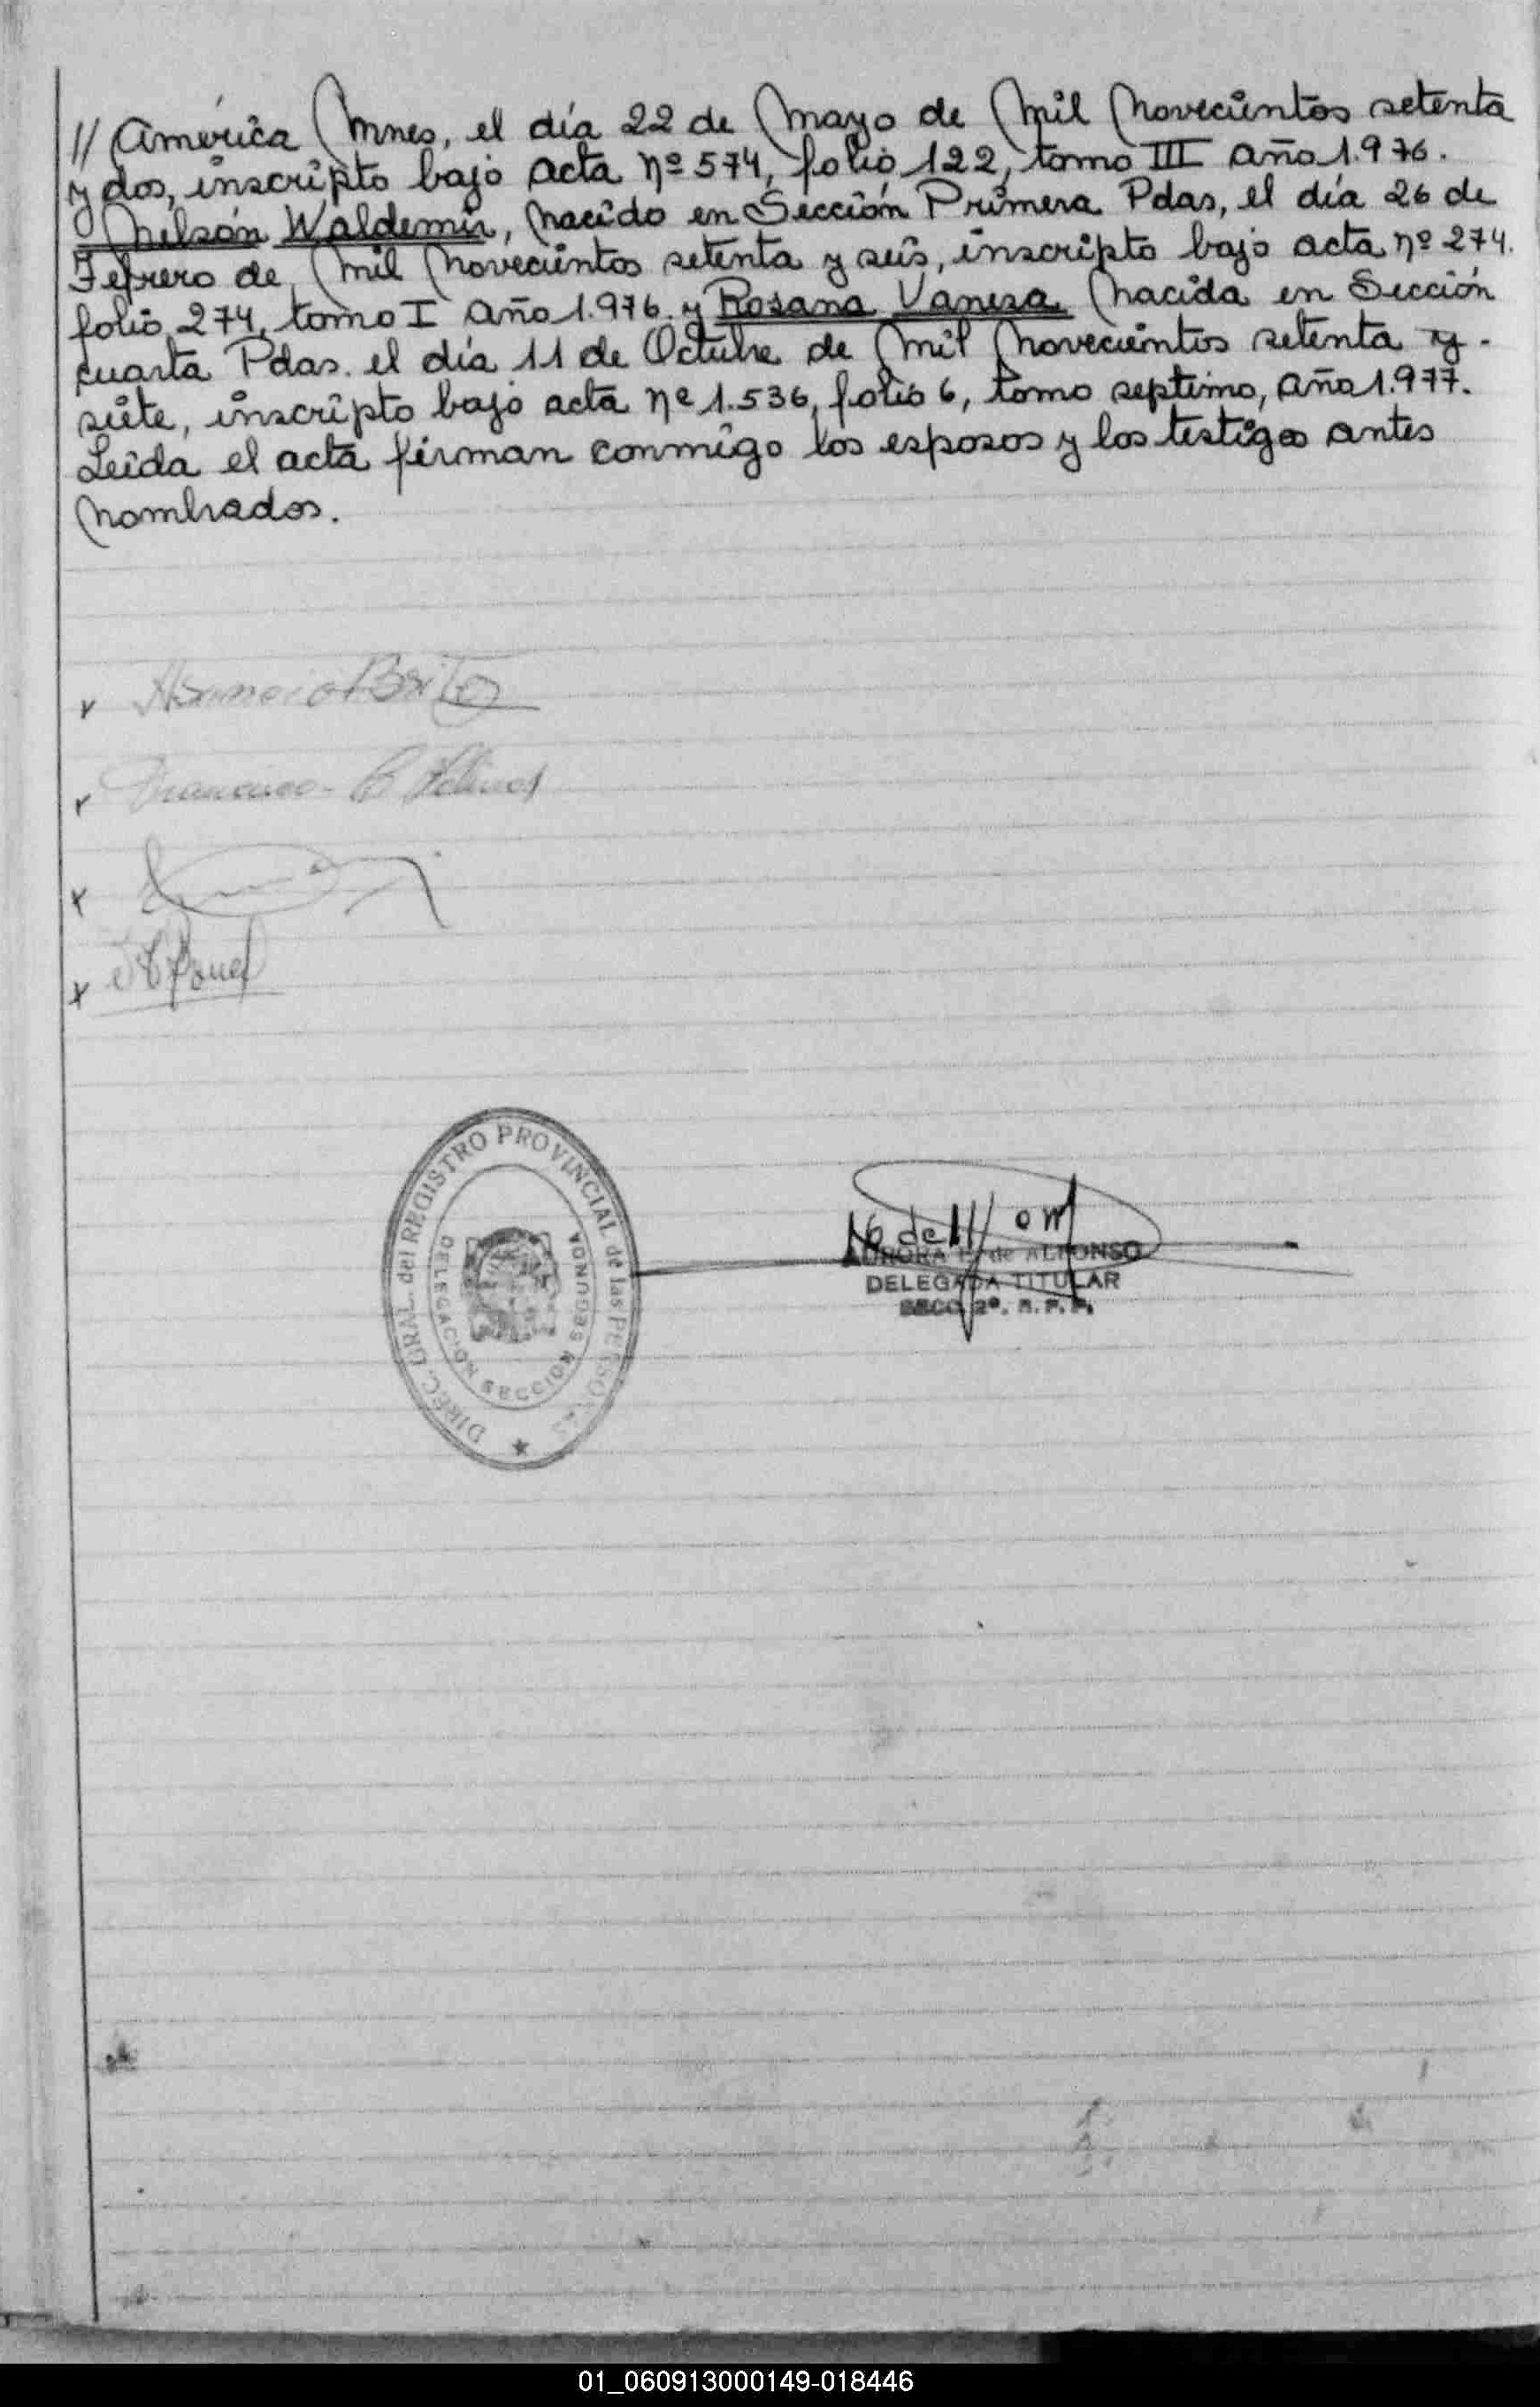 // América Mnes, el día 22 de Mayo de Mil Novecientos setenta
y dos, inscripto bajo acta nº 574, folio 122, tomo III año 1.976.
Nelsón Waldemir, nacido en Sección Primera Pdas, el día 26 de
Febrero de Mil Novecientos setenta y seis, inscripto bajo acta nº 274.
folio 274, tomo I año 1.976. y Rosana Vanesa nacida en Sección
cuarta Pdas. el día 11 de Octubre de Mil Novecientos setenta y -
siete, inscripto bajo acta nº 1.536, folio 6, tomo septimo, año 1.977.
Leída el acta firman conmigo los esposos y los testigos antes
nombrados.
Brito
DIREC. GRAL. del REGISTRO PROVINCIAL de las PERSONAS
DELEGACION SECCION SEGUNDA
AURORA de ALFONSO
DELEGADA TITULAR
SECC. 2º. R. P. P.
01_060913000149-018446